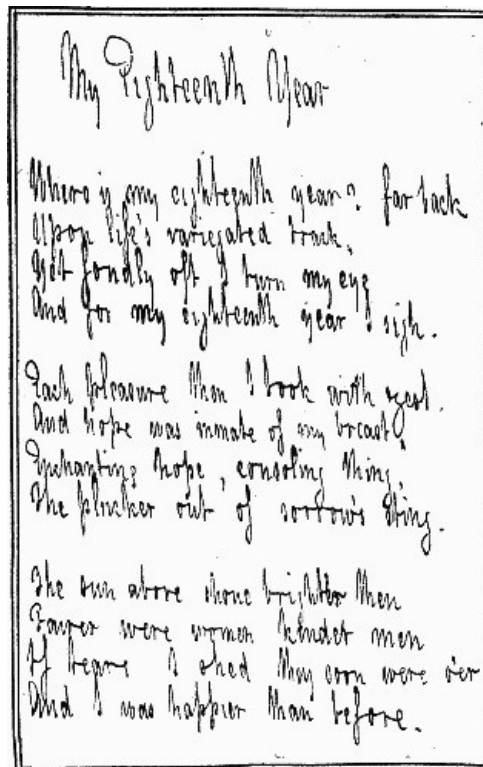 My Eighteenth Year
Where is my eighteenth year? far back
Upon life's variegated track;
Yet fondly oft I turn my eye
And for my eighteenth year I sigh.
Each pleasure then I took with zest,
And hope was inmate of my breast;
Enchanting hope, consoling thing,
The plucker out of sorrow's sting.
The sun above shone brighter then
Fairer were women kinder men
If tears I shed they soon were o'er
And I was happier than before.